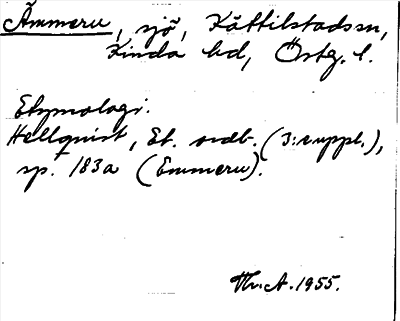 Ämmern, sjö, Kättilstads sn,
Kinda hd, Östg. l.
Etymologi.
Hellquist, Et. ordb. (3: e uppl.),
sp. 183a (Emmern).
Th. A. 1955.